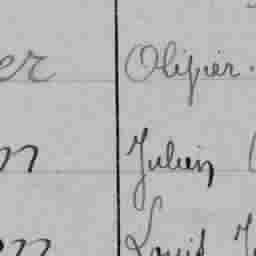 er Olivier.
n Julien
en Louis J